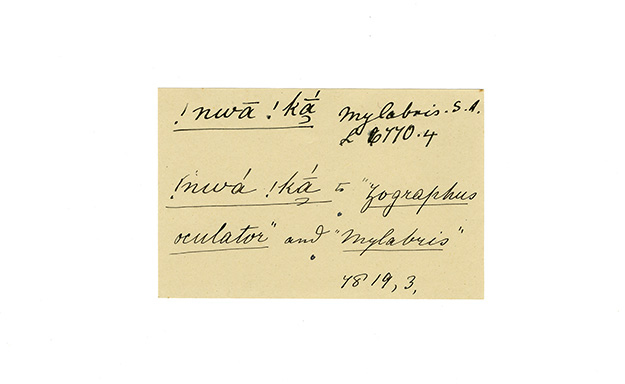 !nwā !kā́ Mylabris. S. A.
L 6770.4
!nwá !kā́ to "Zographus
oculator" and "Mylabris"
7819, 3,